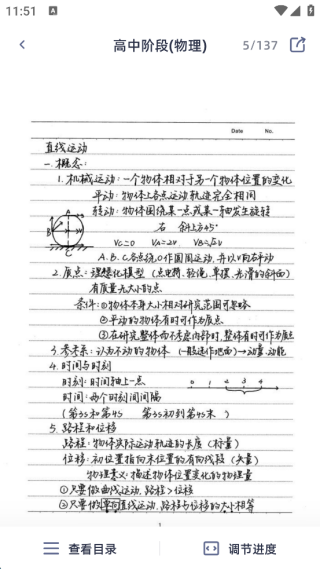 11:51
高中阶段(物理)
5/137
Date No.
直线运动
一.概念:
1.机械运动:一个物体相对于另一个物体位置的变化
平动:物体上各点运动轨迹完全相同
转动:物体围绕某一点或某一轴发生旋转
A
B
C
右 斜上方45°
Vc=0 VA=2v VB=√2v
A.B.C各点绕O作圆周运动,并以v向右平动
2.质点:理想化模型(点电荷、轻绳、单摆、光滑的斜面)
有质量无大小的点
条件:①物体本身大小相对研究范围可忽略
②平动的物体有时可作为质点
③在研究整体而不考虑内部时,整体有时可作为质点
3.参考系:认为不动的物体(一般选作地面)→动量、动能
4.时间与时刻
时刻:时间轴上一点
0 1 2 3 4
时间:两个时刻间间隔
(第3s和第4s 第3s初到第4s末)
5.路程和位移
路程:物体实际运动轨迹的长度(标量)
位移:初位置指向末位置的有向线段(矢量)
物理意义:描述物体位置变化的物理量
①只要做曲线运动,路程>位移
②只要做单向直线运动,路程与位移的大小相等
1
查看目录
调节进度